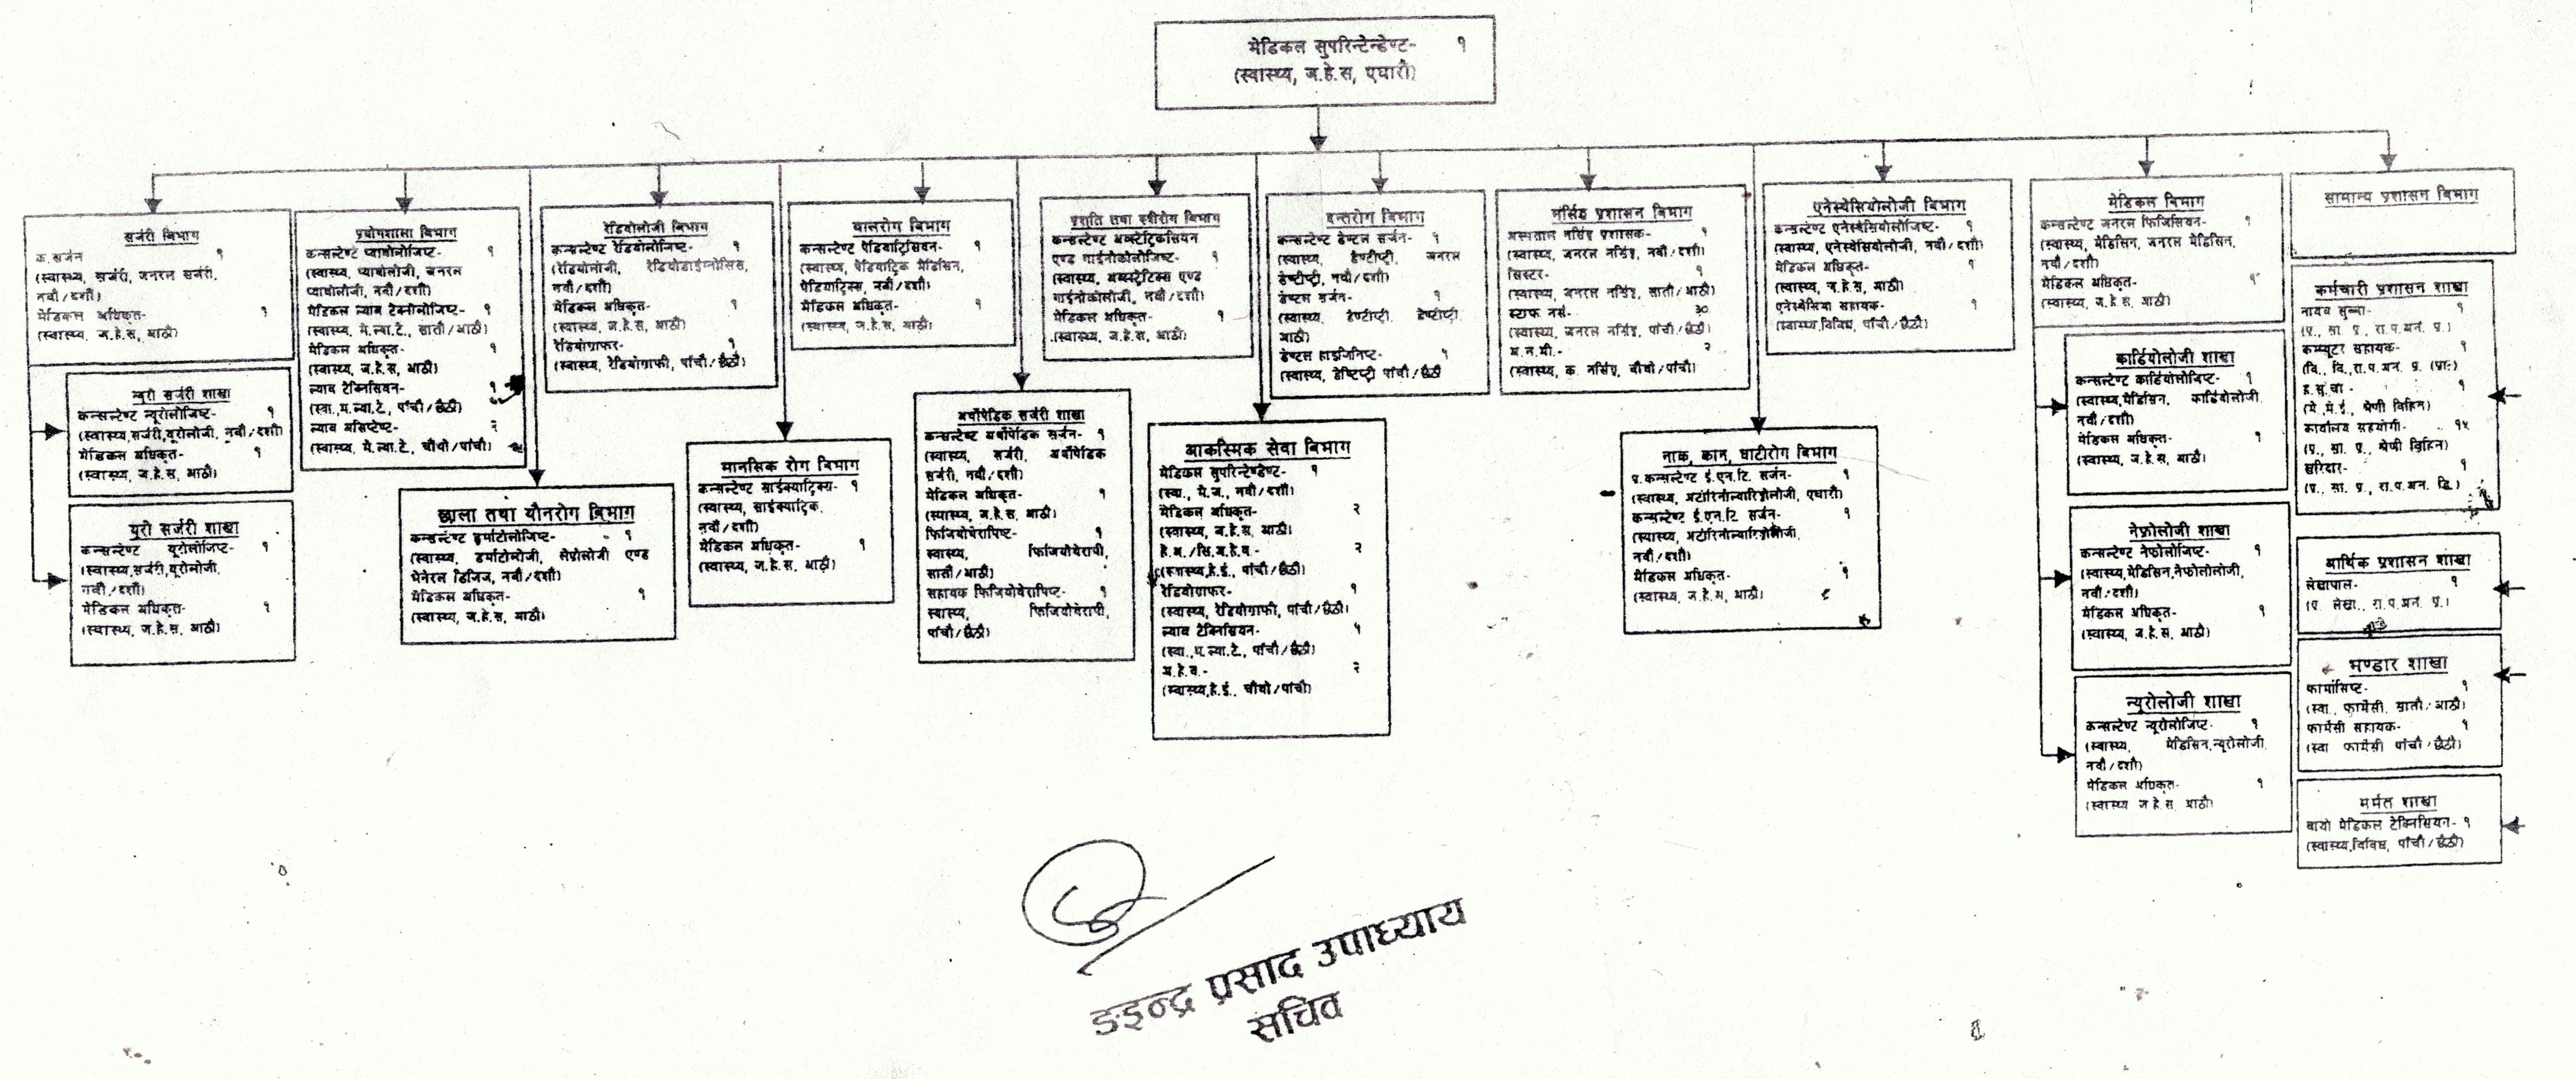 मेडिकल सुपरिन्टेन्डेण्ट- १
(स्वास्थ्य, ज.हे.स, एघारौं)
सर्जरी विभाग
क.सर्जन १
(स्वास्थ्य, सर्जरी, जनरल सर्जरी,
नवौं/दशौं)
मेडिकल अधिकृत- १
(स्वास्थ्य, ज.हे.स, आठौं)
न्यूरो सर्जरी शाखा
कन्सल्टेण्ट न्यूरोलोजिष्ट- १
(स्वास्थ्य,सर्जरी,यूरोलोजी, नवौं/दशौं)
मेडिकल अधिकृत- १
(स्वास्थ्य, ज.हे.स, आठौं)
यूरो सर्जरी शाखा
कन्सल्टेण्ट यूरोलोजिष्ट- १
(स्वास्थ्य,सर्जरी,यूरोलोजी,
नवौं/दशौं)
मेडिकल अधिकृत- १
(स्वास्थ्य, ज.हे.स, आठौं)
प्रयोगशाला विभाग
कन्सल्टेण्ट प्याथोलोजिष्ट- १
(स्वास्थ्य, प्याथोलोजी, जनरल
प्याथोलोजी, नवौं/दशौं)
मेडिकल ल्याब टेक्नोलोजिष्ट- १
(स्वास्थ्य, मे.ल्या.टे., सातौं/आठौं)
मेडिकल अधिकृत- १
(स्वास्थ्य, ज.हे.स, आठौं)
ल्याब टेक्निसियन-
(स्वा.,म.ल्या.टे, पांचौं/छैठौं)
ल्याब असिष्टेण्ट- २
(स्वास्थ्य, मे.ल्या.टे, चौथो/पांचौं)
छाला तथा यौनरोग विभाग
कन्सल्टेण्ट डर्माटोलोजिष्ट- १
(स्वास्थ्य, डर्माटोलोजी, लेप्रोलोजी एण्ड
भेनेरल डिजिज, नवौं/दशौं)
मेडिकल अधिकृत- १
(स्वास्थ्य, ज.हे.स, आठौं)
रेडियोलोजी विभाग
कन्सल्टेण्ट रेडियोलोजिष्ट- १
(रेडियोलोजी, रेडियोडाईग्नोसिस,
नवौं/दशौं)
मेडिकल अधिकृत- १
(स्वास्थ्य, ज.हे.स, आठौं)
रेडियोग्राफर- १
(स्वास्थ्य, रेडियोग्राफी, पांचौं/छैठौं)
मानसिक रोग विभाग
कन्सल्टेण्ट साईक्याट्रिक्स- १
(स्वास्थ्य, साईक्याट्रिक,
नवौं/दशौं)
मेडिकल अधिकृत- १
(स्वास्थ्य, ज.हे.स, आठौं)
बालरोग विभाग
कन्सल्टेण्ट पेडियाट्रिसियन- १
(स्वास्थ्य, पेडियाट्रिक मेडिसिन,
पेडियाट्रिक्स, नवौं/दशौं)
मेडिकल अधिकृत- १
(स्वास्थ्य, ज.हे.स, आठौं)
अर्थोपेडिक सर्जरी शाखा
कन्सल्टेण्ट अर्थोपेडिक सर्जन- १
(स्वास्थ्य, सर्जरी, अर्थोपेडिक
सर्जरी, नवौं/दशौं)
मेडिकल अधिकृत- १
(स्वास्थ्य, ज.हे.स, आठौं)
फिजियोथेरापिष्ट- १
स्वास्थ्य, फिजियोथेरापी,
सातौं/आठौं)
सहायक फिजियोथेरापिष्ट- १
स्वास्थ्य, फिजियोथेरापी,
पांचौं/छैठौं)
प्रसुति तथा स्त्रीरोग विभाग
कन्सल्टेण्ट अब्स्टेट्रिकसियन
एण्ड गाईनोकोलोजिष्ट- १
(स्वास्थ्य, अब्स्ट्रेट्रिक्स एण्ड
गाईनोकोलोजी, नवौं/दशौं)
मेडिकल अधिकृत- १
(स्वास्थ्य, ज.हे.स, आठौं)
आकस्मिक सेवा विभाग
मेडिकल सुपरिन्टेण्डेण्ट- १
(स्वा., मे.ज., नवौं/दशौं)
मेडिकल अधिकृत- २
(स्वास्थ्य, ज.हे.स, आठौं)
हे.अ./सि.अ.हे.व.- २
(स्वास्थ्य,हे.ई., पांचौं/छैठौं)
रेडियोग्राफर- १
(स्वास्थ्य, रेडियोग्राफी, पांचौं/छैठौं)
ल्याब टेक्निसियन- ५
(स्वा.,म.ल्या.टे., पांचौं/छैठौं)
अ.हे.व.- २
(स्वास्थ्य,हे.ई., चौथो/पांचौं)
दन्तरोग विभाग
कन्सल्टेण्ट डेण्टल सर्जन- १
(स्वास्थ्य, डेण्टीष्ट्री, जनरल
डेण्टीष्ट्री, नवौं/दशौं)
डेण्टल सर्जन- १
(स्वास्थ्य, डेण्टीष्ट्री, डेण्टीष्ट्री,
आठौं)
डेण्टल हाइजिनिष्ट- १
(स्वास्थ्य, डेण्टिष्ट्री पांचौं/छैठौं
नर्सिङ प्रशासन विभाग
अस्पताल नर्सिङ प्रशासक- १
(स्वास्थ्य, जनरल नर्सिङ, नवौं/दशौं)
सिस्टर- १
(स्वास्थ्य, जनरल नर्सिङ, सातौं/आठौं)
स्टाफ नर्स- ३०
(स्वास्थ्य, जनरल नर्सिङ, पांचौं/छैठौं)
अ.न.मी.- २
(स्वास्थ्य, क. नर्सिङ, चौथो/पांचौं)
एनेस्थेसियोलोजी विभाग
कन्सल्टेण्ट एनेस्थेसियोलोजिष्ट- १
(स्वास्थ्य, एनेस्थेसियोलोजी, नवौं/दशौं)
मेडिकल अधिकृत- १
(स्वास्थ्य, ज.हे.स, आठौं)
एनेस्थेसिया सहायक- १
(स्वास्थ्य,विविध, पांचौं/छैठौं)
नाक, कान, घाटीरोग विभाग
प्र.कन्सल्टेण्ट ई.एन.टि. सर्जन- १
(स्वास्थ्य, अटोरिनोल्यारिङ्गोलोजी, एघारौं)
कन्सल्टेण्ट ई.एन.टि सर्जन- १
(स्वास्थ्य, अटोरिनोल्यारिङ्गोलोजी,
नवौं/दशौं)
मेडिकल अधिकृत- १
(स्वास्थ्य, ज.हे.स, आठौं)
मेडिकल विभाग
कन्सल्टेण्ट जनरल फिजिसियन- १
(स्वास्थ्य, मेडिसिन, जनरल मेडिसिन,
नवौं/दशौं)
मेडिकल अधिकृत- १
(स्वास्थ्य, ज.हे.स, आठौं)
कार्डियोलोजी शाखा
कन्सल्टेण्ट कार्डियोलोजिष्ट- १
(स्वास्थ्य,मेडिसिन, कार्डियोलोजी,
नवौं/दशौं)
मेडिकल अधिकृत- १
(स्वास्थ्य, ज.हे.स, आठौं)
नेफ्रोलोजी शाखा
कन्सल्टेण्ट नेफोलोजिष्ट- १
(स्वास्थ्य,मेडिसिन,नेफोलोलोजी,
नवौं/दशौं)
मेडिकल अधिकृत- १
(स्वास्थ्य, ज.हे.स, आठौं)
न्यूरोलोजी शाखा
कन्सल्टेण्ट न्यूरोलोजिष्ट- १
(स्वास्थ्य, मेडिसिन,न्यूरोलोजी,
नवौं/दशौं)
मेडिकल अधिकृत- १
(स्वास्थ्य ज.हे.स, आठौं)
सामान्य प्रशासन विभाग
कर्मचारी प्रशासन शाखा
नायव सुब्बा- १
(प्र., सा. प्र., रा.प.अनं. प्र.)
कम्प्यूटर सहायक- १
(वि., वि.,रा.प.अन. प्र. (प्रा.)
ह.सु.चा.- १
(मे.मे.ई., श्रेणी विहिन)
कार्यालय सहयोगी- १५
(प्र., सा. प्र., श्रेणी विहिन)
खरिदार- १
(प्र., सा. प्र., रा.प.अन. द्वि.)
आर्थिक प्रशासन शाखा
लेखापाल- १
(प्र. लेखा., रा.प.अनं. प्र.)
भण्डार शाखा
फार्मासिष्ट- १
(स्वा., फार्मेसी, सातौं/आठौं)
फार्मेसी सहायक- १
(स्वा फार्मेसी पांचौं/छैठौं)
मर्मत शाखा
बायो मेडिकल टेक्निसियन- १
(स्वास्थ्य,विविध, पांचौं/छैठौं)
इन्द्र प्रसाद उपाध्याय
सचिव